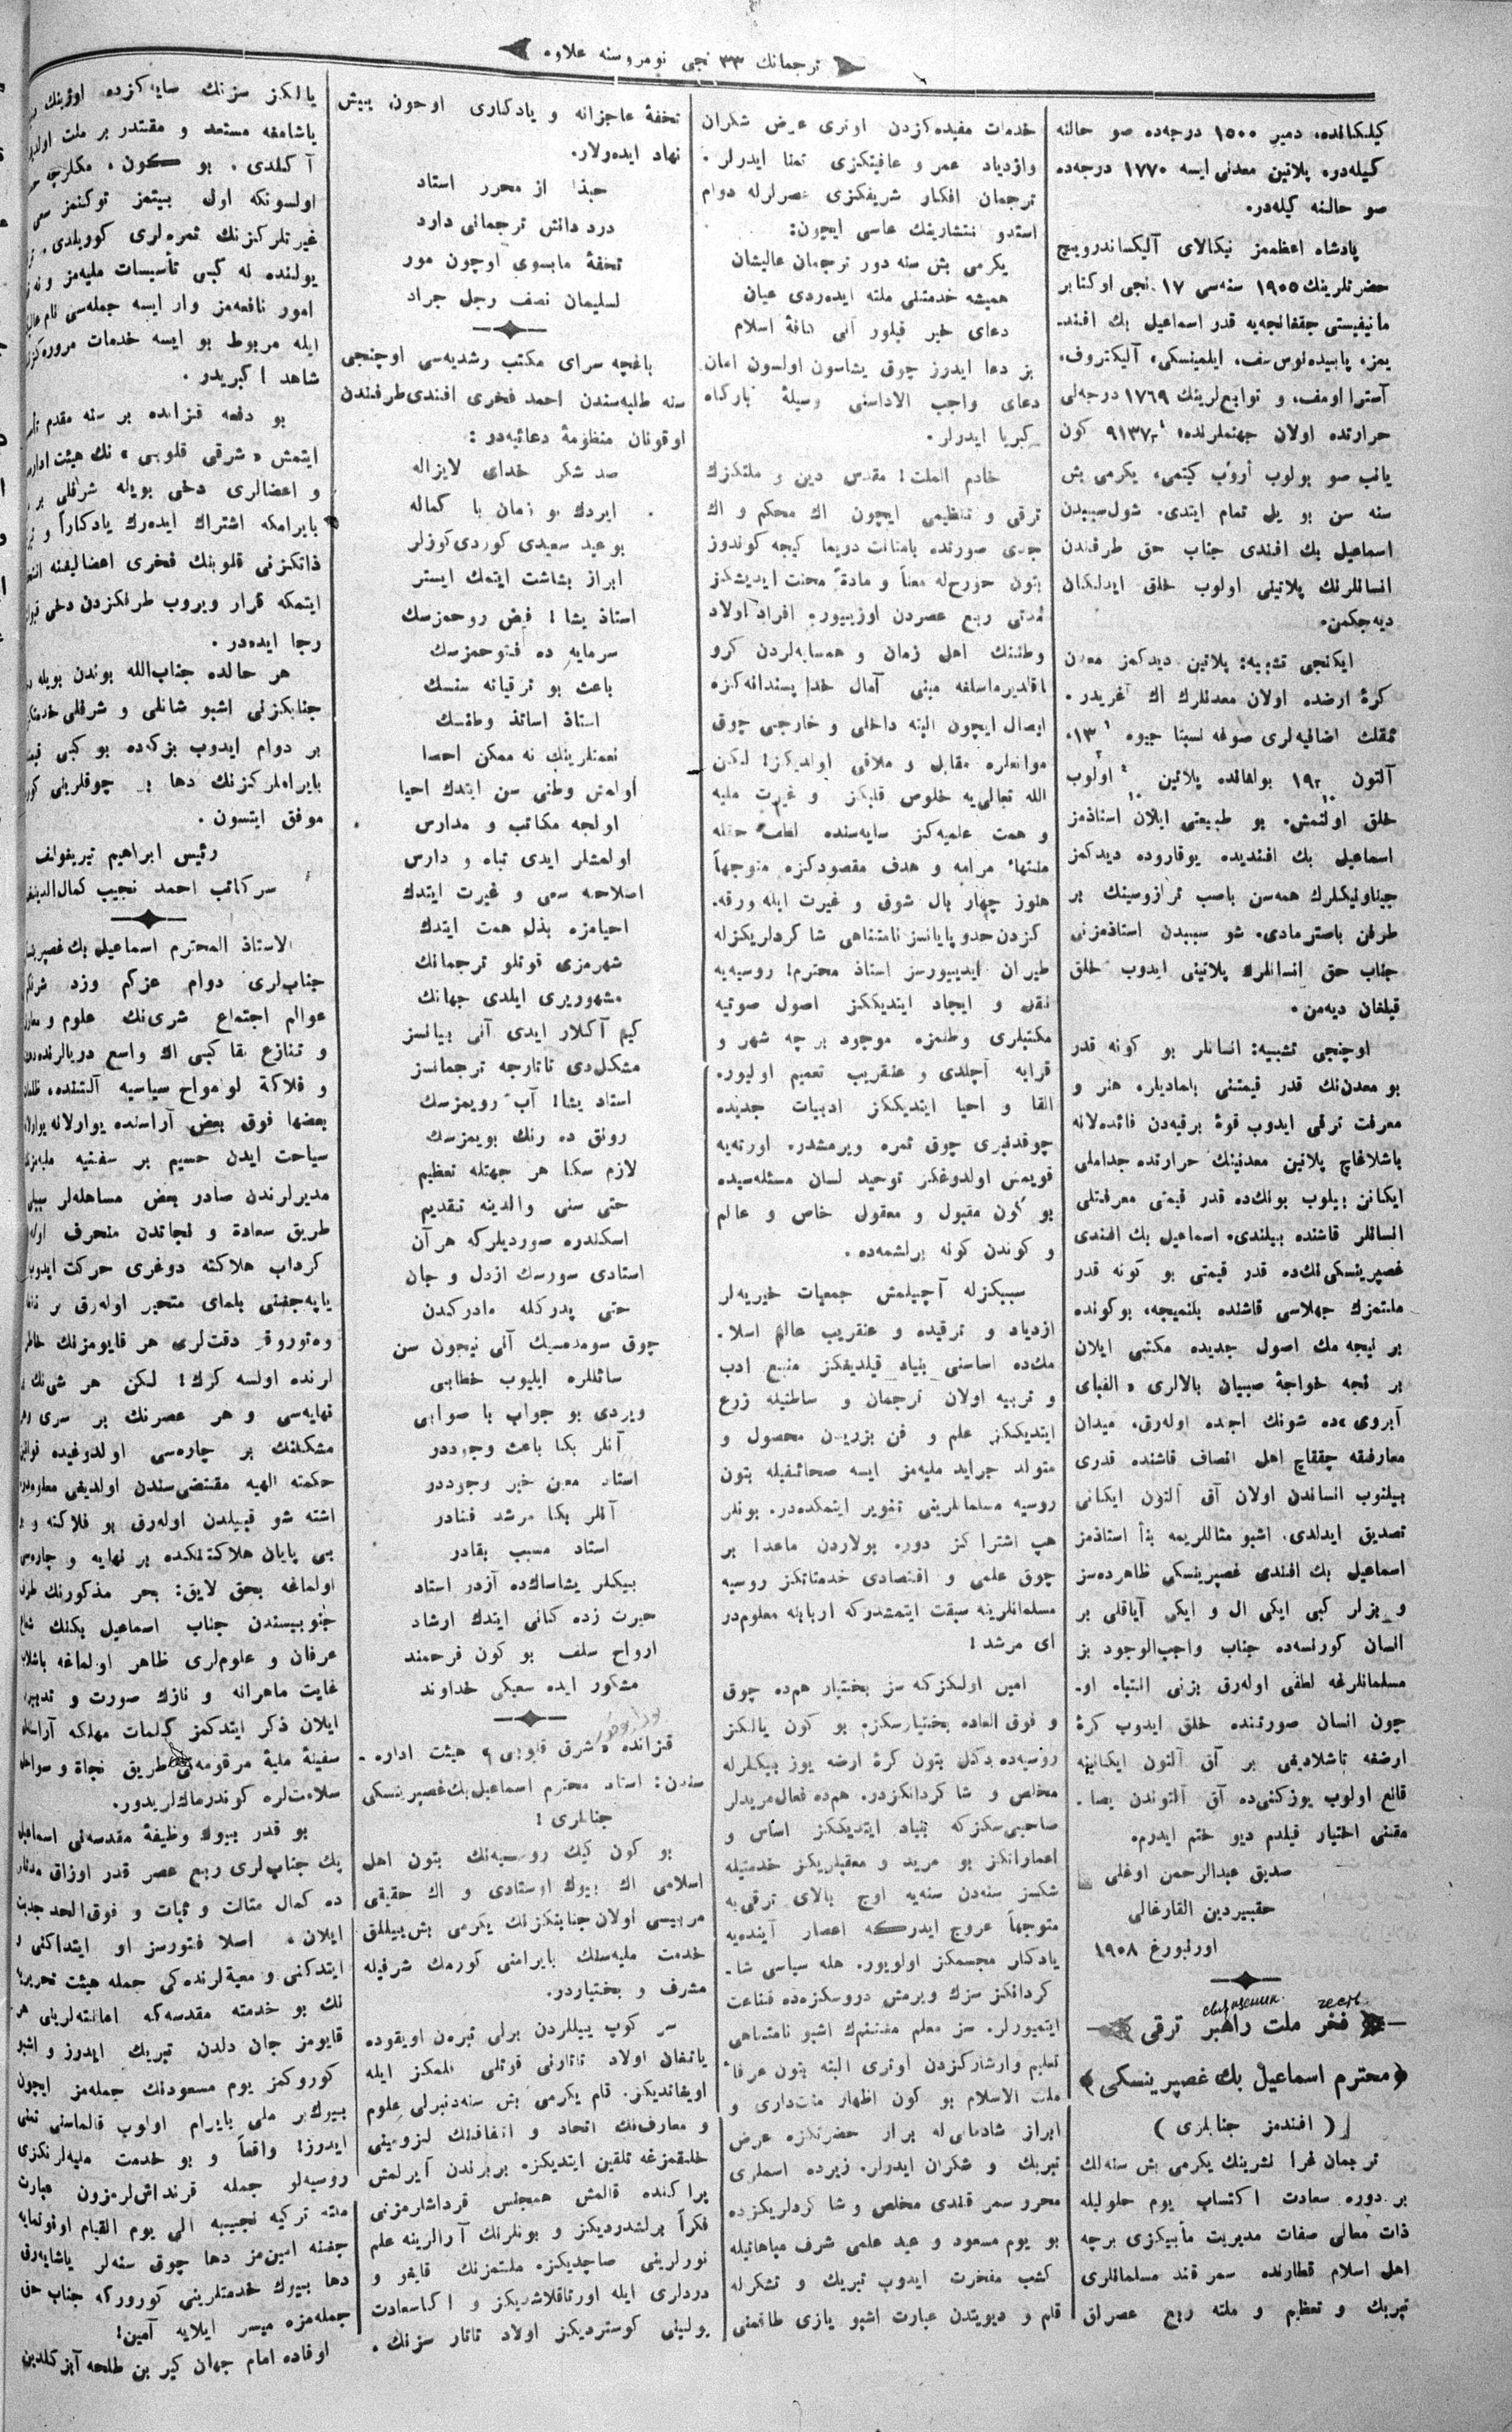 ترجمانك ٣٣ نجی نومروسنه علاوه
كيلكانده، دمير ١٥٠٠ درجه‌ده صو حالنه
كيله‌دره پلاتين معدنی ايسه ١٧٧٠ درجه‌ده
صو حالنه كيله‌در.
پادشاه اعظممز نيكالای آليكساندرويچ
حضرتلرينك ١٩٠٥ سنه‌سی ١٧ نجی اوكتابر
مانيفيستی چققانچه‌يه قدر اسماعيل بك افند-
آستراومف، و توابع‌لرينك ١٧٦٩ درجه‌لی
حرارتده اولان جهنملرنده كون
يانب صو بولوب أروب كيتمی، يكرمی بش
سنه سن بو يل تمام ايتدی. شول سببدن
اسماعيل بك افندی جناب حق طرفندن
انسانلرنك پلاتينی اولوب خلق ايدلكان
ديه‌جكمن.
ايكنجی تشبيه: پلاتين ديدكمز معدن
كرهٔ ارضده اولان معدنلرك اك آغريدر.
ثقلت اضافيه‌لری صوغه نسبتا جيوه ١٣
آلتون ١٩ بولغانده پلاتين اولوب
خلق اولنمش. بو طبيعتی ايلان استاذمز
اسماعيل بك افنديده يوقاروده ديدكمز
چيناونيكلرك همه‌سن باصب ترازوسينك بر
طرفن باسترمادی. شو سببدن استاذمزنی
جناب حق انسانلرك پلاتينی ايدوب خلق
قيلغان ديه‌من.
اوچنجی تشبيه: انسانلر بو كونه قدر
بو معدن‌نك قدر قيمتنی بلماديلر. هنر و
معرفت ترقی ايدوب قوهٔ برقيه‌دن فائده‌لانه
باشلاغاچ پلاتين معدنينك حرارتده چداملی
ايكانن بيلوب بونك‌ده قدر قيمتی معرفتلی
انسانلر قاشنده بيلندی. اسماعيل بك افندی
غصپرينسكی‌نك‌ده قدر قيمتی بو كونه قدر
ملتمزك جهلاسی قاشنده بلنميچه، بوكونده
بر نيچه مك اصول جديده مكتبی ايلان
بر نچه خواجهٔ صبيان بالالری «الفبای
آبروی»ده شونك اچنده اوله‌رق، ميدان
معارفته چققاچ اهل انصاف قاشنده قدری
بيلنوب انساندن اولان آق آلتون ايكانی
تصديق ايدلدی. اشبو مثاللريمه بنأ استاذمز
اسماعيل بك افندی غصپرينسكی ظاهرده‌سز
و بزلر كبی ايكی ال و ايكی آياقلی بر
انسان كورنسه‌ده جناب واجب‌الوجود بز
مسلمانلرغه لطفی اوله‌رق بزنی انتباه او-
چون انسان صورتنده خلق ايدوب كرهٔ
ارضغه تاشلاديغی بر آق آلتون ايكانينه
قانع اولوب يوزكنی‌ده آق آلتوندن يصا-
مقنی اختيار قيلدم ديو ختم ايدرم.
صديق عبدالرحمن اوغلی
اورنبورغ ١٩٠٨
فخر ملت راهبر ترقی
محترم اسماعيل بك غصپرينسكی
(افندمز جنابلری)
ترجمان غرا نشرينك يكرمی بش سنه‌لك
بر دوره سعادت اكتساب يوم حلوليله
ذات معالی صفات مديريت مأبيكزی برچه
اهل اسلام قطارنده سمرقند مسلمانلری
تبريك و تعظيم و ملته ربع عصرلق
خدمات مفيده‌كزدن اوتری عرض شكران
وازدياد عمر و عافيتكزی تمنا ايدرلر.
ترجمان افكار شريفكزی عصرلرله دوام
يكرمی بش سنه دور ترجمان عاليشان
هميشه خدمتنی ملته ايده‌ردی عيان
دعای خير قيلور آنی كافهٔ اسلام
بز دعا ايدرز چوق يشاسون اولسون امان
دعای واجب الاداسنی وسيلهٔ بارگاه
كبريا ايدرلر.
خادم الملت! مقدس دين و ملتكزك
ترقی و تنظيمی ايچون اك محكم و اك
جدی صورتده بامتانت دريما كيجه كوندوز
مدتی ربع عصردن اوزيبيور. افراد اولاد
وطننك اهل زمان و همسايه‌لردن كرو
ايصال ايچون البته داخلی و خارجی چوق
موانعلره مقابل و ملاقی اولديكز! لكن
الله تعالی‌يه خلوص قلبكز و غيرت مليه
و همت علميه‌كز سايه‌سنده لطف حقله
منتهاء مرامه و هدف مقصودكزه متوجهاً
هنوز چهار بال شوق و غيرت ايله ورقه.
كزدن حدو پايانسز نامتناهی شاكردلريكزله
طيران ايديپورسز استاذ محترم! روسيه‌يه
نقل و ايجاد ايتديككز اصول صوتيه
مكتبلری وطنمزه موجود برچه شهر و
قرايه آچلدی و عنقريب تعميم اوليور.
القا و احيا ايتديككز ادبيات جديده
چوقدنبری چوق ثمره ويرمشدر. اورته‌يه
قويمش اولدوغكز توحيد لسان مسئله‌سيده
بو كون مقبول و معقول خاص و عالم
و كوندن كونه برلشمه‌ده.
سببكزله آچيلمش جمعيات خيريه‌لر
ازدياد و ترقيده و عنقريب عالم اسلا-
مك‌ده اساسنی بنياد قيلديغكز منبع ادب
و تربيه اولان ترجمان و ساطتيله زرع
ايتديككز علم و فن بزرينن محصول و
متولد جرايد مليه‌مز ايسه صحائفيله بتون
روسيه مسلمانلرينی تنوير ايتمكده‌در. بونلر
هپ اشتراكز دور. بولاردن ماعدا بر
چوق علمی و اقتصادی خدمتاتكز روسيه
مسلمانلرينه سبقت ايتمشدركه اربابنه معلوم‌در
ای مرشد!
امين اولكزكه سز بختيار هم‌ده چوق
و فوق العاده بختيارسكز. بو كون يالكز
روسيه‌ده دكل بتون كرهٔ ارضه يوز بيكلرله
مخلص و شاكردانكزدر. هم‌ده فعال مريدلر
صاحبی‌سكزكه بنياد ايتديككز اساس و
اعمارانكز بو مريد و معقبلريكز خدمتيله
شكسز سنه‌دن سنه‌يه اوج بالای ترقی‌يه
متوجهاً عروج ايدركه اعصار آينده‌يه
يادكار مجسمكز اولويور. هله سياسی شا-
كردانكز سزك ويرمش دروسكزه‌ده قناعت
ايتميورلر. سز معلم مفتتم‌ك اشبو نامتناهی
تعليم وارشاركزدن اوتری البته بتون عرفاء
ملت الاسلام بو كون اظهار منت‌داری و
ابراز شادمانی‌له برابر حضرتكزه عرض
تبريك و شكران ايدرلر. زيرده اسملری
محرر سمرقندی مخلص و شاكردلريكزده
بو يوم مسعود و عيد علمی شرف مباهاتيله
كسب مفخرت ايدوب تبريك و تشكرله
قلم و ديويتدن عبارت اشبو يازی طاقمنی
تحفهٔ عاجزانه و يادكاری اوچون پيش
نهاد ايده‌رلر.
حبذا از محرر استاد
درد دانش ترجمانی دارد
تحفهٔ مابسوی اوچون مور
لسليمان نصف رجل جراد
باغچه سرای مكتب رشديه‌سی اوچنجی
سنه طلبه‌سندن احمد فخری افندی طرفندن
اوقونان منظومهٔ دعائيه‌در:
صد شكر خدای لايزاله
ايردك بو زمان با كماله
بوعيد سعيدی كوردی كوزلر
ابراز بشاشت ايتمك ايستر
استاذ يشا! فيض روحمزسك
سرمايه ده فتوحمزسك
باعث بو ترقياته سنسك
استاذ اساتذ وطنسك
نعمتلرينك نه ممكن احصا
اولمش وطنی سن ايتدك احيا
اولجه مكاتب و مدارس
اولمشلر ايدی تباه و دارس
اصلاحه سعی و غيرت ايتدك
احيامزه بذل همت ايتدك
شهرمزی قوتلو ترجمانك
مشهوريری ايلدی جهانك
كيم آكلار ايدی آنی بيانسز
مشكل‌دی تاتارجه ترجمانسز
استاد يشا! آب رويمزسك
رونق ده رنك بويمزسك
لازم سكا هر جهتله تعظيم
حتی سنی والدينه تقديم
اسكندره صورديلركه هرآن
استادی سورسك ازدل و جان
حتی پدركله مادركدن
چوق سومه‌سك آنی نيچون سن
سائللره ايليوب خطابی
ويردی بو جواب با صوابی
آنلر بكا باعث وجوددر
استاد معين خير وجوددر
آنلر بكا مرشد فنادر
استاد مسبب بقادر
بيكلر يشاساك‌ده آزدر استاد
حيرت زده كانی ايتدك ارشاد
ارواح سلف بو كون فرحمند
مشكور ايده سعيكی خداوند
قزانده «شرق قلوبی» هيئت اداره-
سندن: استاد محترم اسماعيل بك غصپرينسكی
جنابلری!
بو كون كيك روسيه‌نك بتون اهل
اسلامی اك بيوك اوستادی و اك حقيقی
مربيسی اولان جنابكزنك يكرمی بش ييللق
خدمت مليه‌سنك بايرامنی كورمك شرفيله
مشرف و بختياردر.
سر كوب ييللردن برلی تيره‌ن اويقوده
ياتغان اولاد تاتارنی قوتلی قلمكز ايله
اويغانديكز. قام يكرمی بش سنه‌دنبرلی علوم
و معارفنك اتحاد و اتفاقنك لزومينی
خلقمزغه تلقين ايتديكز. بربرندن آيرلمش
پراكنده قالمش همجنس قرداشلرمزنی
فكراً برلشدرديكز و بونلرنك آرالرينه علم
نورلرينی صاچديكز. ملتمزنك قايغو و
دردلری ايله اورتاقلاشديكز و اكا سعادت
يولينی كوسترديكز اولاد تاتار سزنك.
يالكز سزنك سايه‌كزده اوزينك
ياشامغه مستعد و مقتدر بر ملت
آكلدی. بو كون، مكلرچه
اولسونكه اول بيتمز توكنمز سعی
غيرتلركزنك ثمره‌لری كورلدی.
يولنده نه كبی تأسيسات مليه‌مز
امور نافعه‌مز وار ايسه جمله‌سی نام
ايله مربوط بو ايسه خدمات
شاهد اكبريدر.
بو دفعه قزانده بر سنه مقدم
ايتمش «شرقی قلوبی» نك هيئت
و اعضالری دخی بويله شرفلی بر
بايرامكه اشتراك ايده‌رك يادكاراً و
ذاتكزنی قلوبنك فخری اعضالیغنه
ايتمكه قرار ويروب طرفكزدن دخی
رجا ايده‌در.
هر حالده جناب‌الله بوندن بويله
جنابكزنی اشبو شانلی و شرفلی
بر دوام ايدوب بزكه‌ده بو كبی
بايراملركزنك دها چوقلرينی
موفق ايتسون.
رئيس ابراهيم تيريغولف
سركاتب احمد نجيب
الاستاذ المحترم اسماعيل بك
جناب‌لری دوام عزكم وزد
عوالم اجتماع شری‌نك علوم
و تنازع بقا كبی اك واسع
و فلاكة لوامواح سياسيه آلتنده،
بعضها فوق بعض آراسنده
سياحت ايدن جسيم بر سفينه
مديرلرندن صادر بعض مساهله‌لر
طريق سعادة و نجاتدن منحرف
كرداب هلاكته دوغری حركت
ياپه‌جغنی بلمای متحير اوله‌رق بر
دقت‌لری هر قايومزنك
لرنده اولسه كرك! لكن هر شی‌نك
نهايه‌سی و هر عصرنك بر سری
مشكلنك بر چاره‌سی اولدوغيده
حكمته الهيه مقتضی‌سندن اولديغی
اشته شو قبيلدن اوله‌رق بو فلاكته
بی پايان هلاكتمكده بر نهايه و
اولماغه بحق لايق: بحر مذكورنك
جنوبيسندن جناب اسماعيل بكنك
عرفان و علوم‌لری ظاهر اولماغه
غايت ماهرانه و نازك صورت و
ايلان ذكر ايتدكمز كلمات مهلكه
سفينهٔ مليهٔ مرقومه‌نی طريق نجاة و
سلامت‌لره كوندرماك‌لريدور.
بو قدر بيوك وظيفهٔ مقدسه‌نی
بك جناب‌لری ربع عصر قدر اوزاق
ده كمال متانت و ثبات و فوق الحد
ايلان، اصلا فتورسز او ايتداكنی
ايتدكنی و معية‌لرنده‌كی جمله هيئت
نك بو خدمته مقدسه‌كه
قايومز جان دلدن تبريك ايدرز و
كوروكمز يوم مسعودنك جمله‌مز ايچون
بيوك بر ملی بايرام اولوب قالماسنی تمنی
ايدرز! واقعاً و بو خدمت مليه‌لرنكزی
روسيه‌لو جمله قرنداش‌لرمزون عبارت
ملته تركيه نجيبه الی يوم القيام
جفنه امين‌مز دها چوق سنه‌لر
دها بيوك خدمتلرينی كورورگه جناب حق
جمله‌مزه ميسر ايلايه آمين!
اوفاده امام جهان كير بن طلحه